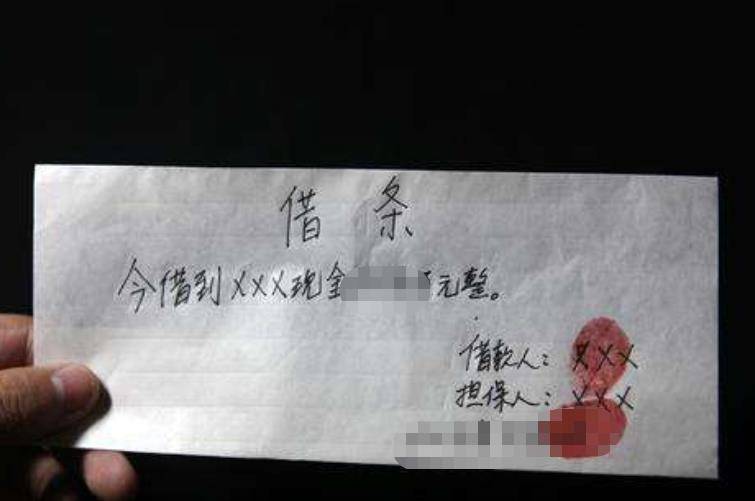 借条
今借到XXX现金元整。
借款人：XXX
担保人：XXX